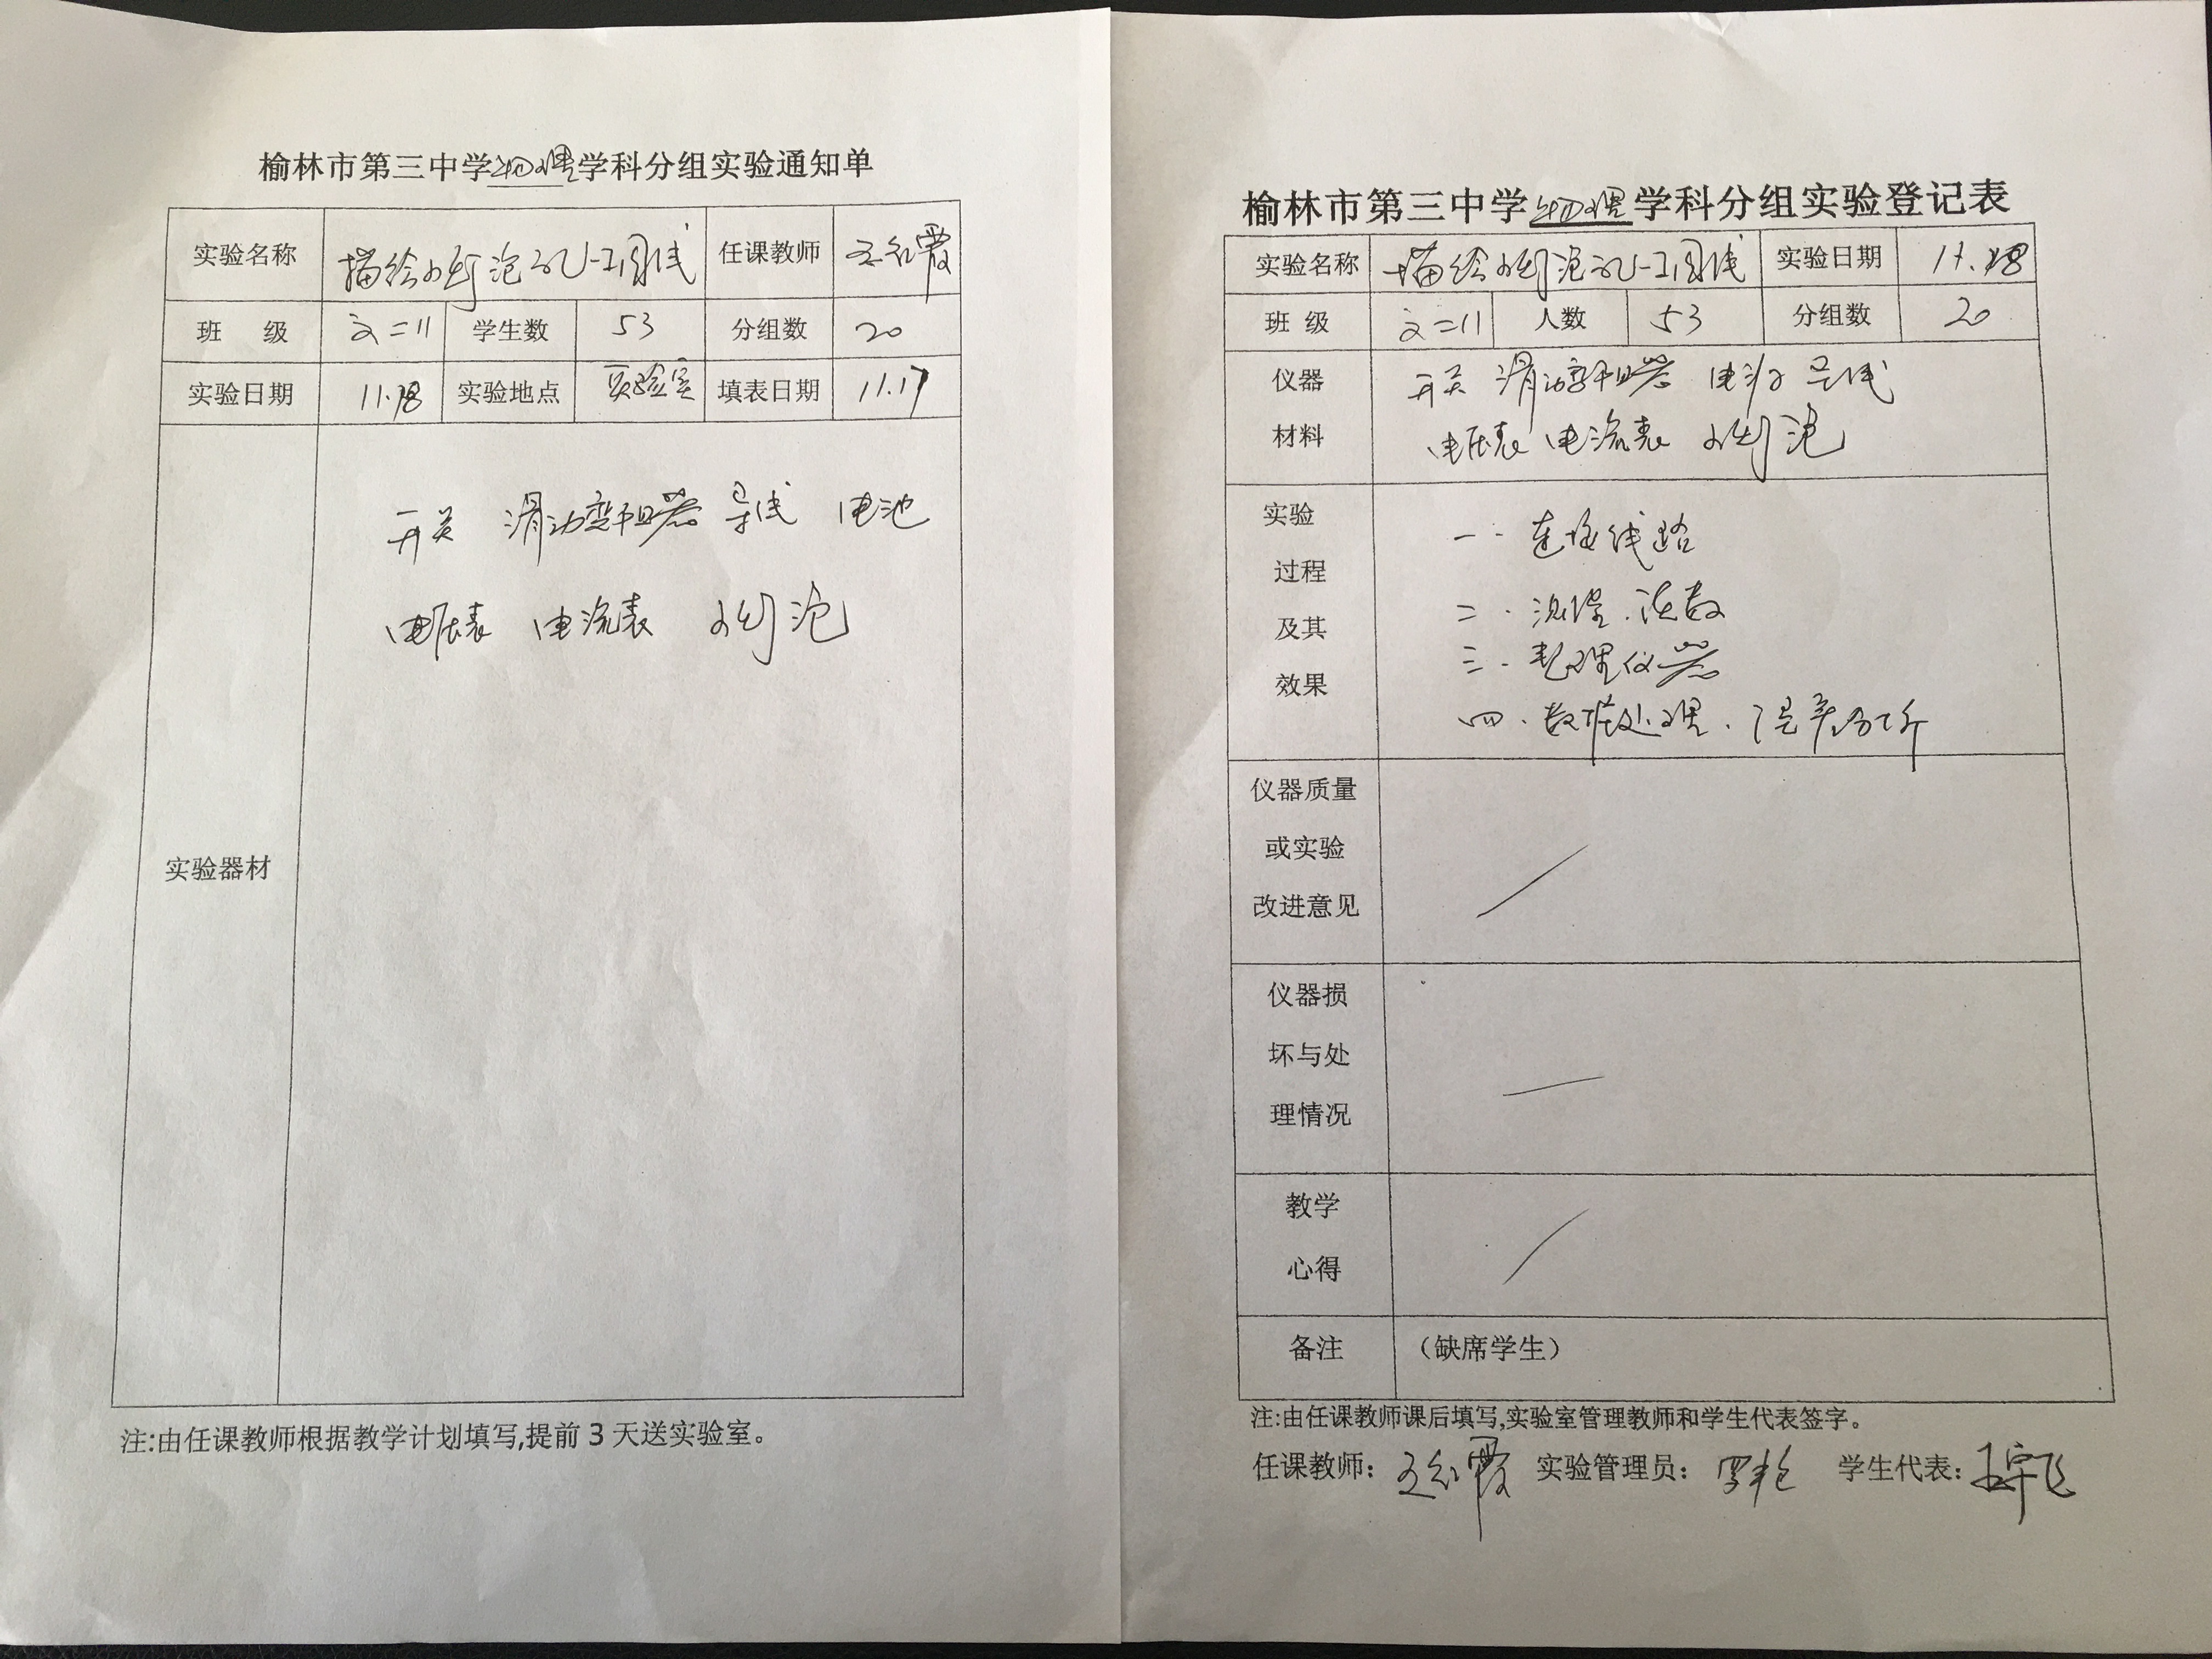 榆林市第三中学物理学科分组实验通知单
实验名称 描绘小灯泡的U-I图线 任课教师 王红霞
班 级 文二11 学生数 53 分组数 20
实验日期 11.18 实验地点 实验室 填表日期 11.17
实验器材
开关 滑动变阻器 导线 电池
电压表 电流表 小灯泡
注:由任课教师根据教学计划填写,提前3天送实验室。
榆林市第三中学物理学科分组实验登记表
实验名称 描绘小灯泡的U-I图线 实验日期 11.18
班 级 文二11 人数 53 分组数 20
仪器 开关 滑动变阻器 电源 导线
材料 电压表 电流表 小灯泡
实验 一. 连接线路
过程 二. 测量.读数
及其 三. 整理仪器
效果 四. 数据处理.误差分析
仪器质量
或实验
改进意见
仪器损
坏与处
理情况
教学
心得
备注 (缺席学生)
注:由任课教师课后填写,实验室管理教师和学生代表签字。
任课教师: 王红霞 实验管理员: 学生代表: 王宇飞